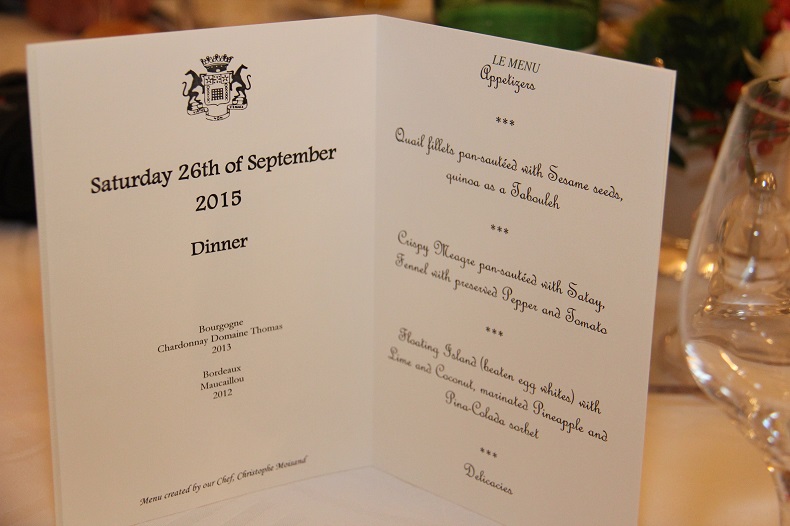 Saturday 26th of September
2015
Dinner
Bourgogne
Chardonnay Domaine Thomas
2013
Bordeaux
Maucaillou
2012
Menu created by our Chef, Christophe Moisand
LE MENU
Appetizers
***
Quail fillets pan-sautéed with Sesame seeds,
quinoa as a Tabouleh
***
Crispy Meagre pan-sautéed with Satay,
Fennel with preserved Pepper and Tomato
***
Floating Island (beaten egg whites) with
Lime and Coconut, marinated Pineapple and
Pina-Colada sorbet
***
Delicacies